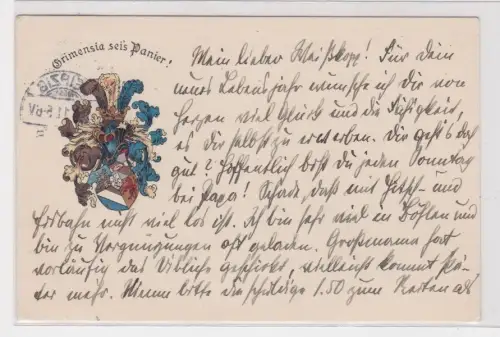 Grimensia seis Panier!
LEIPZIG
Mein lieber Weißkopf! Für Dein
neues Lebensjahr wünsche ich Dir von
Herzen viel Glück und die Fähigkeit,
es Dir selbst zu erwerben. Dir geht's doch
gut? Hoffentlich bist Du jeden Sonntag
bei Papa! Schade, daß mit und
Eisbahn nicht viel los ist. Ich bin sehr viel in Döhlen und
bin zu Vergnügungen oft geladen. Großmama hat
vorläufig das Übliche geschickt, vielleicht kommt spä-
ter mehr. Nimm bitte die schuldige 1.50 zum Karten als